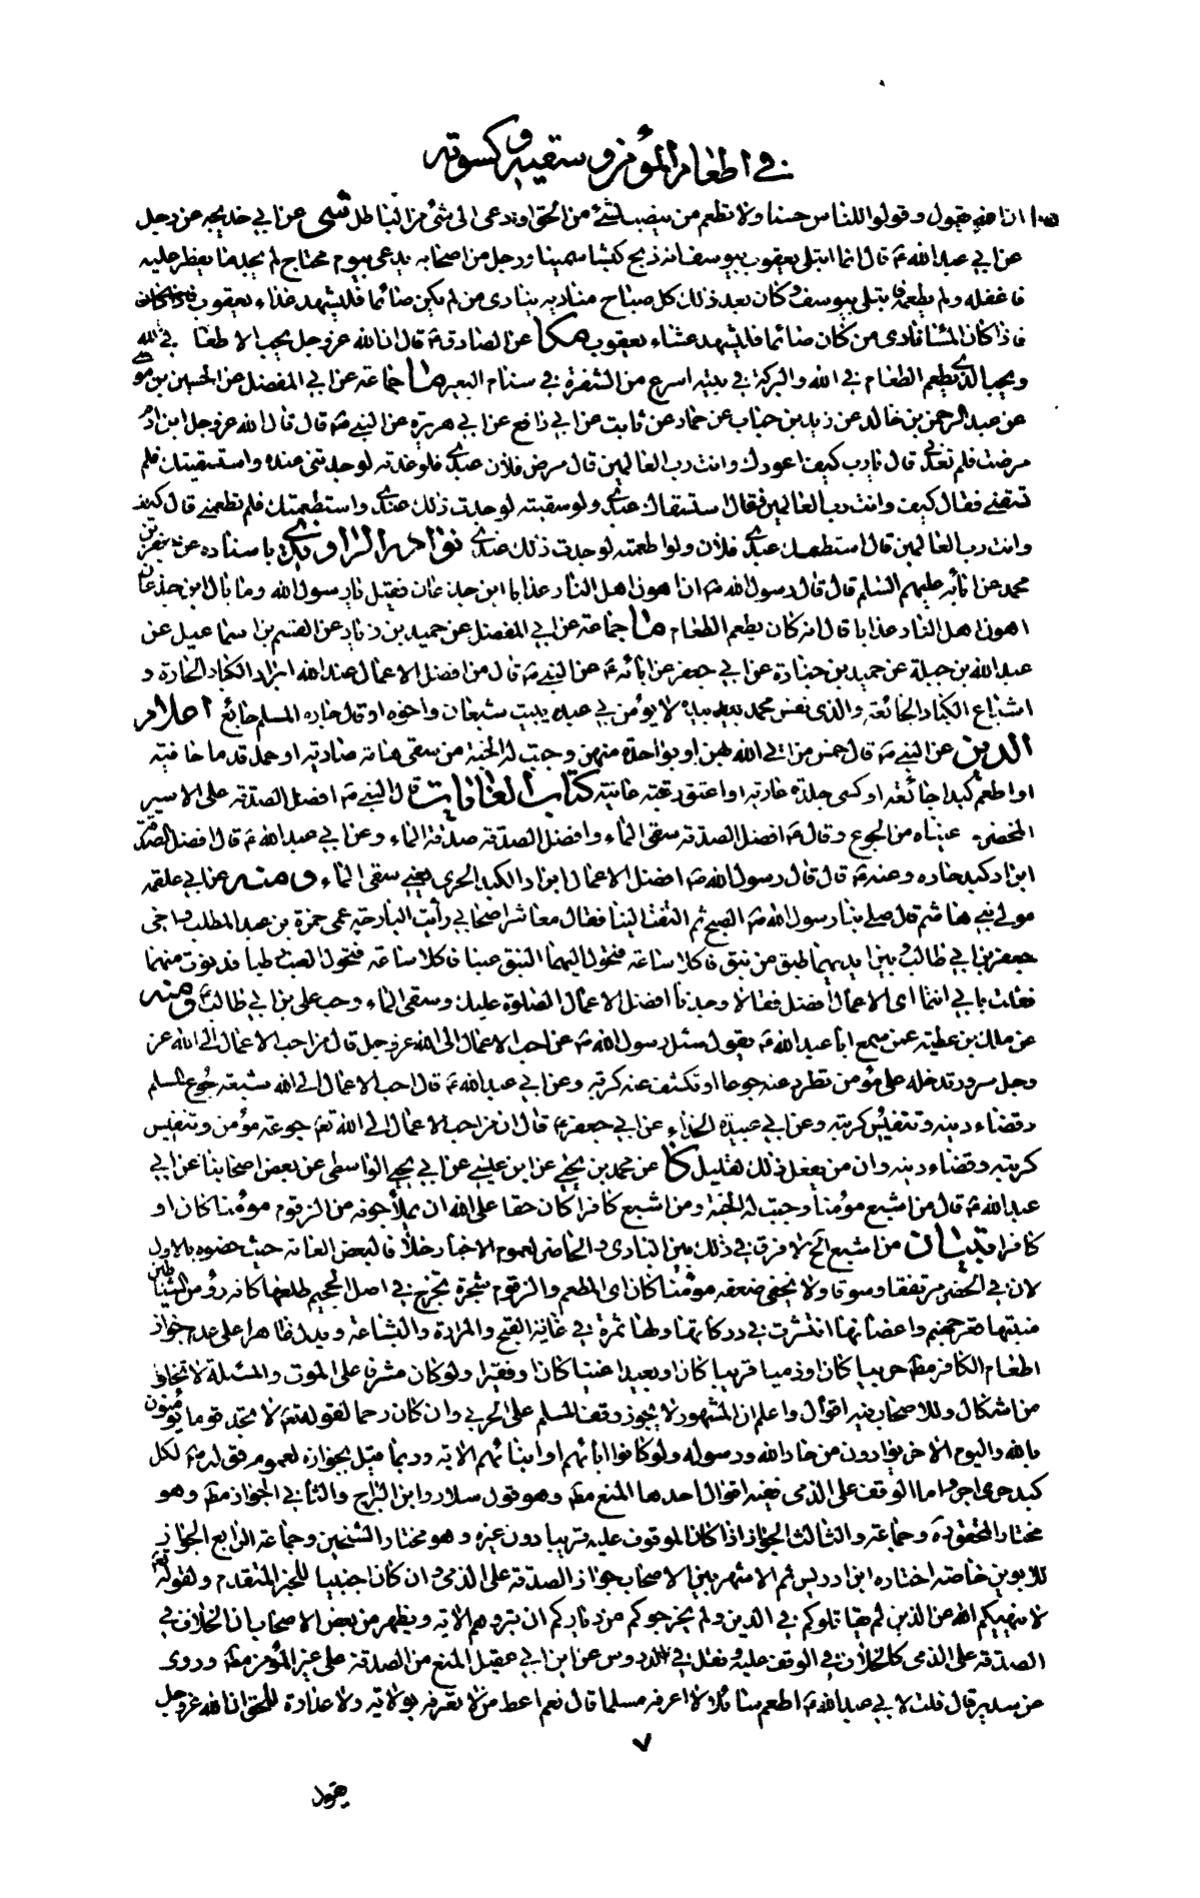 في اطعام المؤمن وسقيه وكسوته
يقول وقولوا للناس حسنا ولا تطعم من ينصب لشئ من الحق او دعى الى شئ من الباطل شى عن ابي خديجه عن رجل
عن ابي عبد الله ع قال انما ابتلى يعقوب بيوسف انه ذبح كبشا سمينا ورجل من اصحابه يدعى بيوم محتاج لم يجد ما يفطر عليه
فاغفله ولم يطعمه فابتلى بيوسف وكان بعد ذلك كل صباح مناديه ينادى من لم يكن صائما فليشهد غذاء يعقوب
فاذا كان المساء نادى من كان صائما فليشهد عشاء يعقوب عن الصادق ع قال ان الله عز وجل يحب الاطعام في الله
ويحب الذي يطعم الطعام في الله والبركة في بيته اسرع من الشفرة في سنام البعير ما جماعة عن ابي المفضل عن الحسين بن مو
عن عبد الرحمن بن خالد عن زيد بن حباب عن حماد عن ثابت عن ابي رافع عن ابي هريرة عن النبي ص قال قال الله عز وجل ابن ادم
مرضت فلم تعدني قال يا رب كيف اعودك وانت رب العالمين قال مرض فلان عبدي فلو عدته لوجدتني عنده واستسقيتك فلم
تسقني فقال كيف وانت رب العالمين فقال استسقاك عبدي ولو سقيته لوجدت ذلك عندي واستطعمتك فلم تطعمني قال كيف
وانت رب العالمين قال استطعمك عبدي فلان ولو اطعمته لوجدت ذلك عندي نوادر الراوندي باسناده عن جعفر بن
محمد عن ابائه عليهم السلم قال قال رسول الله ص ان اهون اهل النار عذابا ابن جدعان فقيل يا رسول الله وما بال ابن جدعان
اهون اهل النار عذابا قال انه كان يطعم الطعام ما جماعة عن ابي المفضل عن حميد بن زياد عن القسم بن اسماعيل عن
عبد الله بن جبلة عن حميد بن جنادة عن ابي جعفر عن ابائه ع عن النبي ص قال من افضل الاعمال عند الله ابراد الكباد الحارة و
اشباع الكباد الجائعة والذي نفس محمد بيده لا يؤمن بي عبد يبيت شبعان واخوه او قال جاره المسلم جائع اعلام
الدين عن النبي ص قال خمس من اتى الله بهن او بواحدة منهن وجبت له الجنة من سقى هامة صادية او حمل قدما حافية
او اطعم كبدا جائعة او كسى جلدة عارية او اعتق رقبة عانية كتاب الغايات قال النبي ص افضل الصدقة على الاسير
المخضر عيناه من الجوع وقال ع افضل الصدقة سقى الماء وافضل الصدقة صدقة الماء وعن ابي عبد الله ع قال افضل الصدقة
ابراد كبد حاره وعنه ع قال قال رسول الله ص افضل الاعمال ابراد الكبد الحرى يعني سقى الماء ومنه عن ابي علقمه
مولى بني هاشم قال صلى بنا رسول الله ص الصبح ثم التفت الينا فقال معاشر اصحابي رأيت البارحة عمى حمزة بن عبد المطلب واخى
جعفر بن ابي طالب وبين ايديهما طبق من نبق فاكلا ساعة فتحول اليهما النبق عنبا فاكلا ساعة فتحول العنب رطبا فدنوت منهما
فقلت بابي انتما اى الاعمال افضل فقالا وجدنا افضل الاعمال الصلوة عليك وسقى الماء وحب على بن ابي طالب ومنه
عن مالك بن عطية عمن سمع ابا عبد الله ع يقول سئل رسول الله ص عن احب الاعمال الى الله عز وجل قال من احب الاعمال الى الله عز
وجل سرور تدخله على مؤمن تطرد عنه جوعا او تكشف عنه كربة وعن ابي عبد الله ع قال احب الاعمال الى الله شبعة جوع المسلم
وقضاء دينه وتنفيس كربته وعن ابي عبيدة الحذاء عن ابي جعفر ع قال ان من احب الاعمال الى الله تع جوعة مؤمن وتنفيس
كربته وقضاء دينه وان من يفعل ذلك لقليل كا عن محمد بن يحيى عن ابن عيسى عن ابي يحيى الواسطى عن بعض اصحابنا عن ابي
عبد الله ع قال من اشبع مؤمنا وجبت له الجنة ومن اشبع كافرا كان حقا على الله ان يملأ جوفه من الزقوم مؤمنا كان او
كافرا تبيان من اشبع الخ لا فرق في ذلك بين البادى والحاضر لعموم الاخبار خلافا لبعض العامة حيث خصوه بالاول
لان في الحضر مرتفقا وسوقا ولا يخفى ضعفه مؤمنا كان اى المطعم والزقوم شجرة تخرج في اصل الجحيم طلعها كانه رؤس الشياطين
منبتها قعر جهنم واغصانها انتشرت في دركاتها ولها ثمرة في غاية القبح والمرارة والبشاعة ويدل ظاهرا على عدم جواز
اطعام الكافر مط حربيا كان او ذميا قريبا كان او بعيدا غنيا كان او فقيرا ولو كان مشرفا على الموت والمسئلة لا تخلو
من اشكال وللاصحاب فيه اقوال واعلم ان المشهور لا يجوز وقف المسلم على الحربي وان كان رحما لقوله تع لا تجد قوما يؤمنون
بالله واليوم الاخر يوادون من حاد الله ورسوله ولو كانوا اباءهم او ابنائهم الاية وربما قيل بجوازه لعموم قوله ص لكل
كبد حرى اجر واما الوقف على الذمى ففيه اقوال احدها المنع مط وهو قول سلار وابن البراج والثاني الجواز مط وهو
مختار المحقق ره وجماعة والثالث الجواز اذا كان الموقوف عليه قريبا دون غيره وهو مختار الشيخين وجماعة الرابع الجواز
للابوين خاصة اختاره ابن ادريس ثم الاشهر بين الاصحاب جواز الصدقة على الذمى وان كان اجنبيا للخبر المتقدم ولقوله تع
لا ينهيكم الله عن الذين لم يقاتلوكم في الدين ولم يخرجوكم من دياركم ان تبروهم الاية ويظهر من بعض الاصحاب ان الخلاف في
الصدقة على الذمى كالخلاف في الوقف عليه ونقل في الدروس عن ابن ابي عقيل المنع من الصدقة على غير المؤمن مط وروى
عن سدير قال قلت لابي عبد الله ع اطعم سائلا لا اعرفه مسلما قال نعم اعط من لا تعرفه بولاية ولا عداوة للحق ان الله عز وجل
٧
يقول